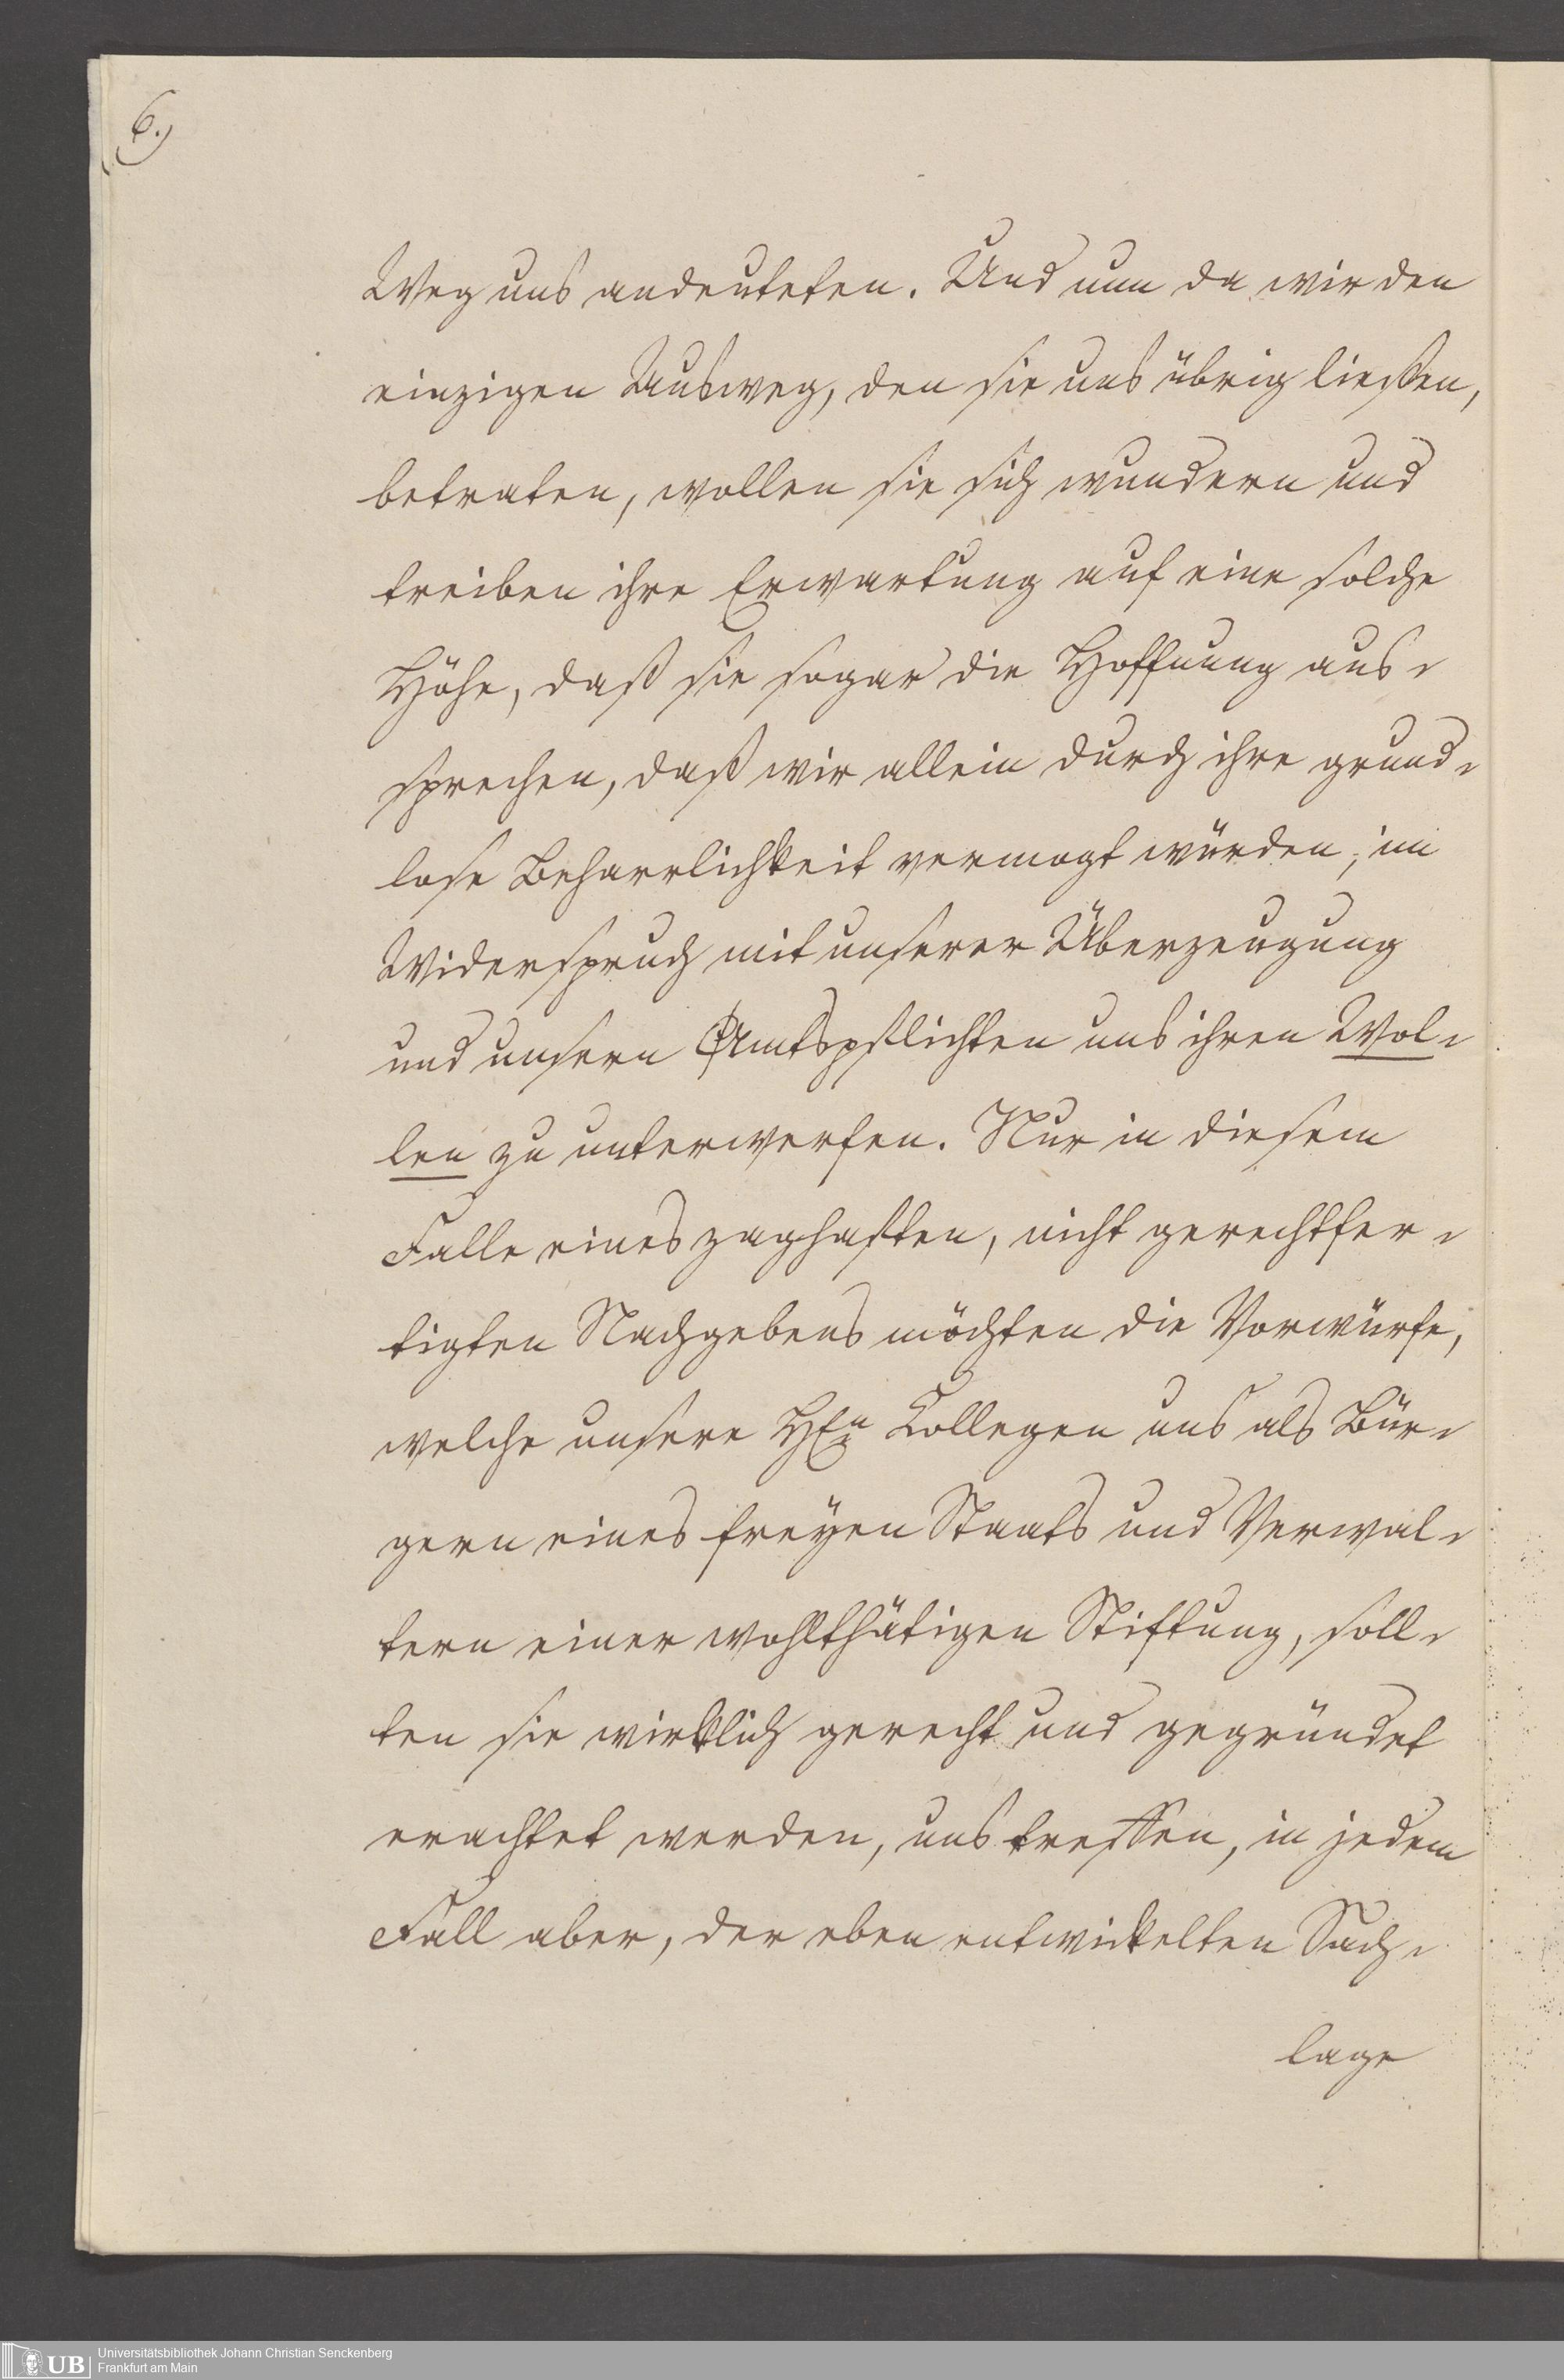 6.)
Weg uns andeuteten. Und nun da wir den
einzigen Ausweg, den sie uns übrig ließen,
betraten, wollen sie sich wundern und
treiben ihre Erwartung auf eine solche
Höhe, daß sie sogar die Hoffnung aus-
sprechen, daß wir allein durch ihre grund-
lose Beharrlichkeit vermogt würden, im
Widerspruch mit unserer Überzeugung
und unsern Amtspflichten uns ihren Wol-
len zu unterwerfen. Nur in diesem
Falle eines zaghaften, nicht gerechtfer-
tigten Nachgebens möchten die Vorwürfe,
welche unsere HEn Collegen uns als Bür-
gern eines freyen Staats und Verwal-
tern einer wohlthätigen Stiftung, soll-
ten sie wirklich gerecht und gegründet
erachtet werden, uns treffen, in jedem
Fall aber, der eben entwickelten Sach-
lage
UB
Universitätsbibliothek Johann Christian Senckenberg
Frankfurt am Main